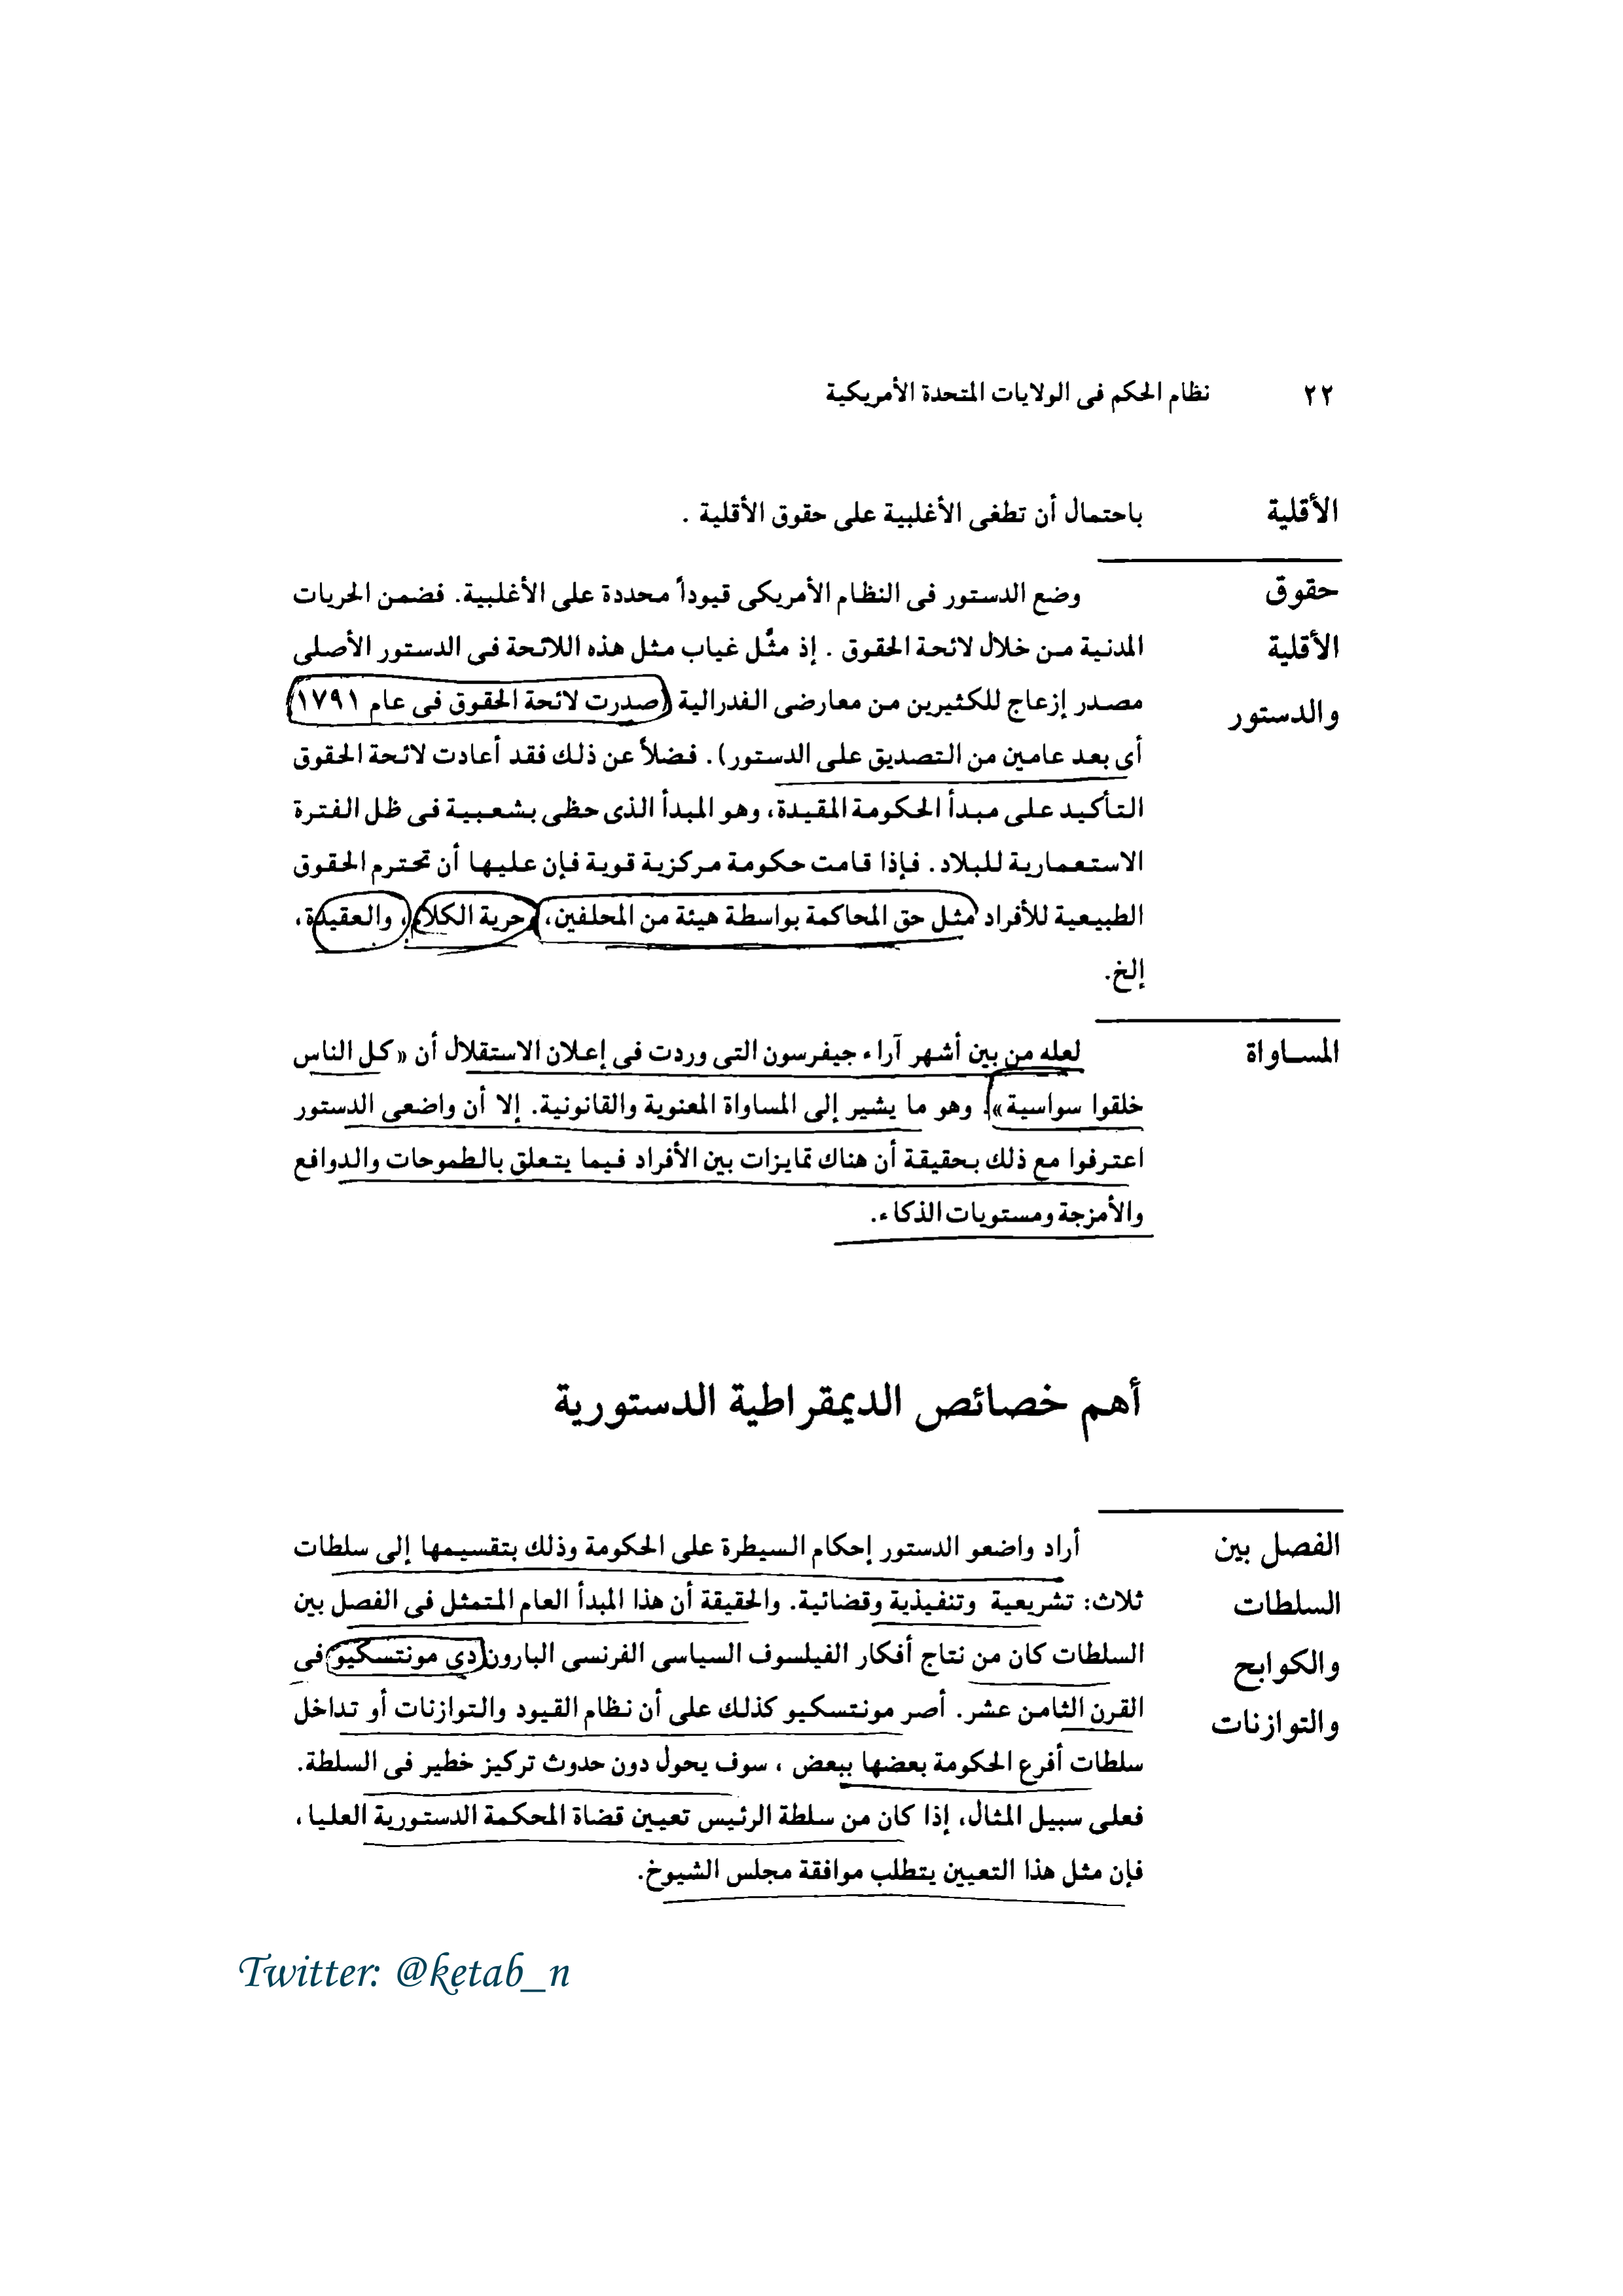 ٢٢ نظام الحكم فى الولايات المتحدة الأمريكية
الأقلية باحتمال أن تطغى الأغلبية على حقوق الأقلية .
حقوق وضع الدستور فى النظام الأمريكى قيوداً محددة على الأغلبية. فضمن الحريات
الأقلية المدنية من خلال لائحة الحقوق . إذ مثَّل غياب مثل هذه اللائحة فى الدستور الأصلى
والدستور مصدر إزعاج للكثيرين من معارضى الفدرالية (صدرت لائحة الحقوق فى عام ١٧٩١
أى بعد عامين من التصديق على الدستور). فضلاً عن ذلك فقد أعادت لائحة الحقوق
التأكيد على مبدأ الحكومة المقيدة، وهو المبدأ الذى حظى بشعبية فى ظل الفترة
الاستعمارية للبلاد. فإذا قامت حكومة مركزية قوية فإن عليها أن تحترم الحقوق
الطبيعية للأفراد مثل حق المحاكمة بواسطة هيئة من المحلفين، وحرية الكلام، والعقيدة،
إلخ.
المساواة لعله من بين أشهر آراء جيفرسون التى وردت فى إعلان الاستقلال أن «كل الناس
خلقوا سواسية». وهو ما يشير إلى المساواة المعنوية والقانونية. إلا أن واضعى الدستور
اعترفوا مع ذلك بحقيقة أن هناك تمايزات بين الأفراد فيما يتعلق بالطموحات والدوافع
والأمزجة ومستويات الذكاء.
أهم خصائص الديمقراطية الدستورية
الفصل بين أراد واضعو الدستور إحكام السيطرة على الحكومة وذلك بتقسيمها إلى سلطات
السلطات ثلاث: تشريعية وتنفيذية وقضائية. والحقيقة أن هذا المبدأ العام المتمثل فى الفصل بين
والكوابح السلطات كان من نتاج أفكار الفيلسوف السياسى الفرنسى البارون دى مونتسكيو فى
والتوازنات القرن الثامن عشر. أصر مونتسكيو كذلك على أن نظام القيود والتوازنات أو تداخل
سلطات أفرع الحكومة بعضها ببعض ، سوف يحول دون حدوث تركيز خطير فى السلطة.
فعلى سبيل المثال، إذا كان من سلطة الرئيس تعيين قضاة المحكمة الدستورية العليا،
فإن مثل هذا التعيين يتطلب موافقة مجلس الشيوخ.
Twitter: @ketab_n